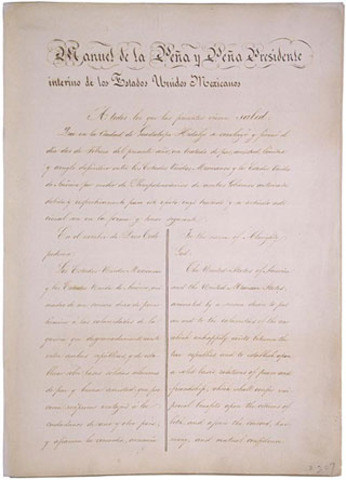 Manuel de la Peña y Peña Presidente
interino de los Estados Unidos Mexicanos
A todos los que las presentes vieren salud.
Que en la Ciudad de Guadalupe Hidalgo se concluyó y firmó el
día dos de Febrero del presente año, un tratado de paz, amistad, límites
y arreglo definitivo entre los Estados Unidos Mexicanos y los Estados Unidos
de America por medio de Plenipotenciarios de ambos Gobiernos autorizados
debida y respectivamente para este
en la forma y tenor siguiente.
En el nombre de Dios Todo
poderoso:
Los Estados Unidos Mexicanos
y los Estados Unidos de America, ani
mados de un sincero deseo de poner
término a las calamidades de la
guerra que desgraciadamente existe
entre ambas repúblicas, y de esta
blecer sobre bases sólidas relaciones
de paz y buena amistad, que pro
curen recíprocas ventajas a los
ciudadanos de uno y otro pais,
y afiancen la concordia, armonía
In the name of Almighty
God:
The United States of America
and the United Mexican States,
animated by a sincere desire to put
an end to the calamities of the war
which unhappily exists between the
two republics, and to establish upon
a solid basis relations of peace and
friendship, which shall confer reci
procal benefits upon the citizens of
both, and assure the concord, har
mony and mutual confidence